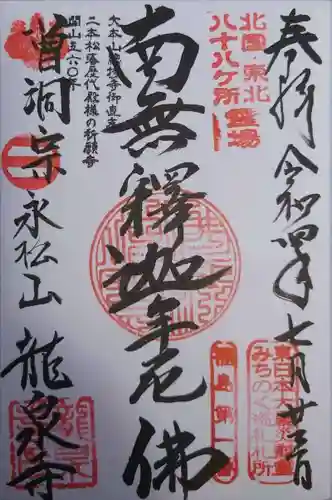 奉拝 令和四年七月廿三日
北国・東北
八十八ヶ所霊場
東日本大震災慰霊
みちのく巡礼札所
福島第一
南無釋迦牟尼佛
大本山總持寺御直末
二本松藩歴代殿様の祈願寺
開山五六〇年
曹洞宗 永松山 龍泉寺